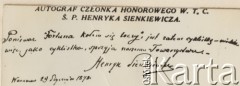 AUTOGRAF CZŁONKA HONOROWEGO W. T. C.
Ś. P. HENRYKA SIENKIEWICZA.
Ponieważ Fortuna kołem się toczy i jest zatem cyklistką
więc, jako cyklistka, sprzyja naszemu Towarzystwu.
Henryk Sienkiewicz
Warszawa 29 Stycznia 1897.
Karta